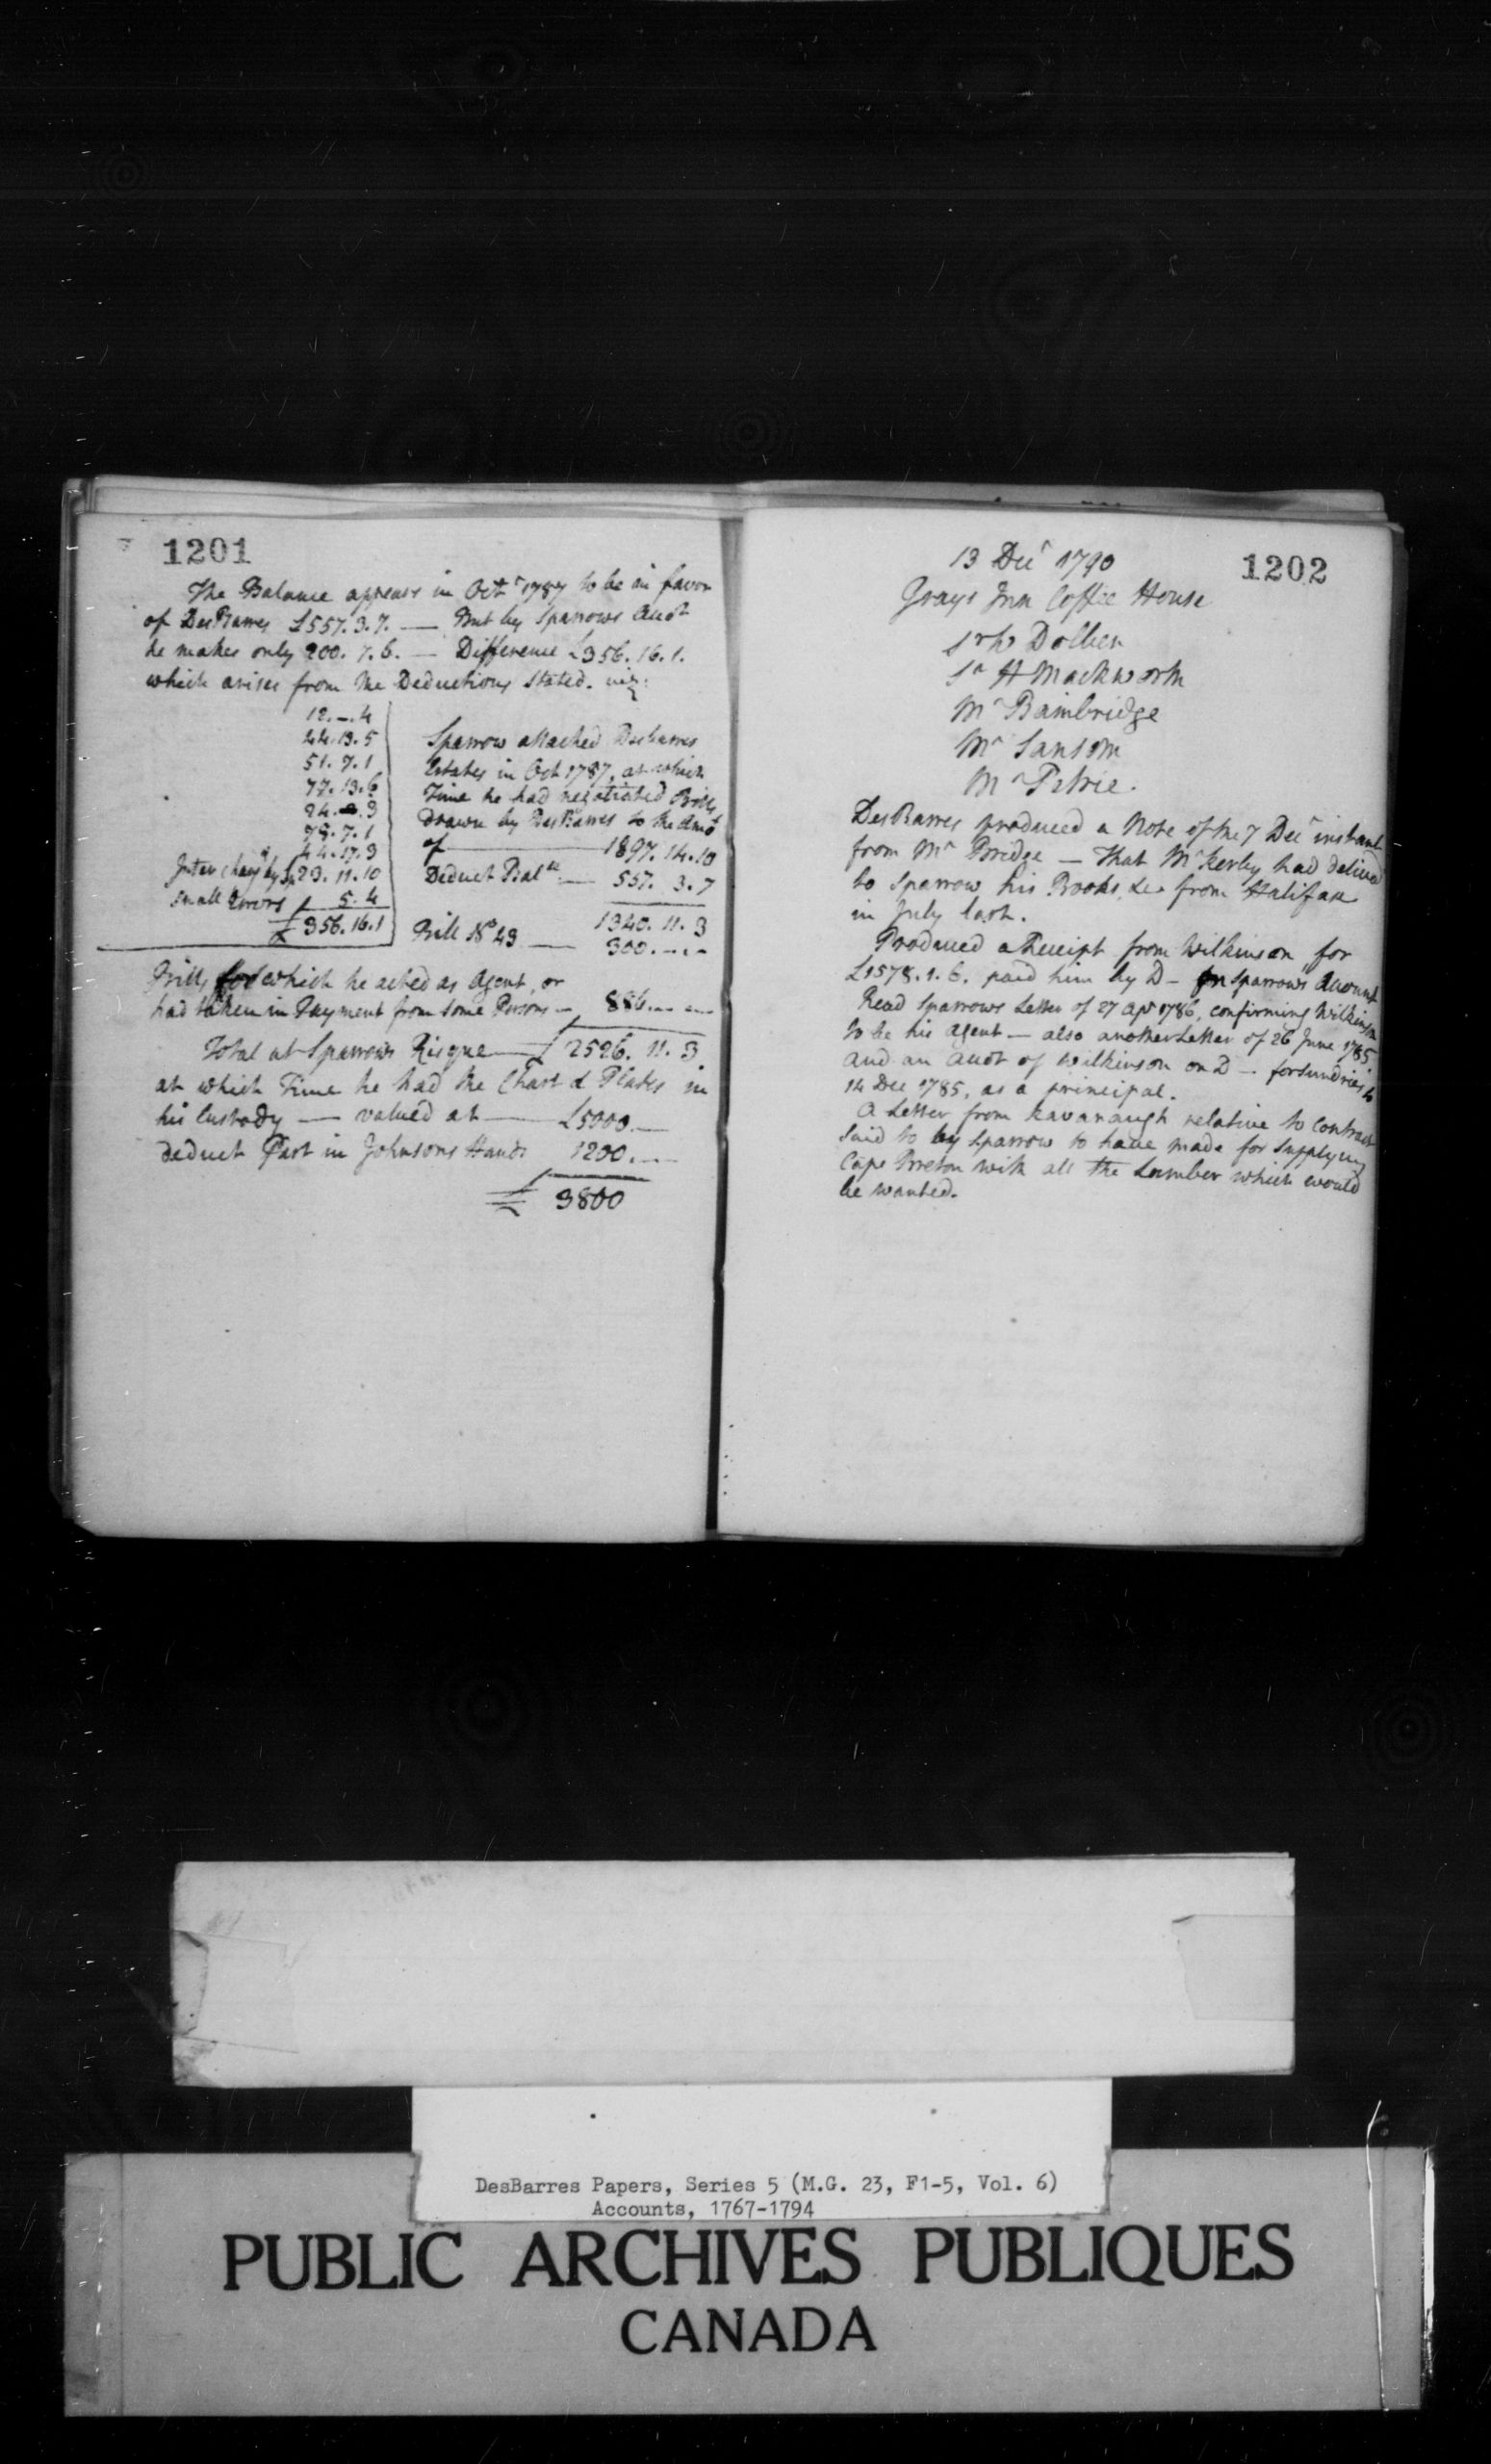 1201
The Balance appears in Octr 1787 to be in favor
of DesBarres £557.3.7. — But by Sparrows Acct
he makes only 200.7.6. — Difference £356.16.1.
which arises from the Deductions stated. viz:
12.–.4
44.13.5
51.7.1
77.13.6
24.2.3
78.7.1
44.17.3
Inter chargd by Sp 23.11.10
Small Errors 5.4
£356.16.1
Sparrow attached DesBarres
Estates in Oct 1787, at which
Time he had negotiated Bills
drawn by DesBarres to the Amt
of — 1897.14.10
Deduct Balce — 557.3.7
1340.11.3
Bill No 49 — 300.–.–
Bills for which he acted as Agent, or
had taken in Payment from some Persons — 886.–.–
Total at Sparrows Risque — £2526.11.3
at which Time he had the Chart & Plates in
his Custody — valued at — £5000.—
deduct Part in Johnsons Hands 1200.—
£3800
1202
13 Decr 1790
Grays Inn Coffee House
Sr W Dolben
Sr H Mackworth
Mr Bainbridge
Mr Sansom
Mr Petrie.
DesBarres produced a Note of the 7 Decr instant
from Mr Bridge — That Mr Kerby had deliverd
to Sparrow his Books, &c from Halifax
in July last.
Produced a Receipt from Wilkinson for
£1578.1.6. paid him by D — on Sparrows Account
Read Sparrows Letter of 27 Apr 1786, confirming Wilkinson
to be his Agent — also another Letter of 26 June 1785
and an Acct of Wilkinson on D — for sundries to
14 Dec 1785, as a principal.
A Letter from Kavanaugh relative to Contract
said to by Sparrow to have made for supplying
Cape Breton with all the Lumber which would
be wanted.
DesBarres Papers, Series 5 (M.G. 23, F1-5, Vol. 6)
Accounts, 1767-1794
PUBLIC ARCHIVES PUBLIQUES
CANADA